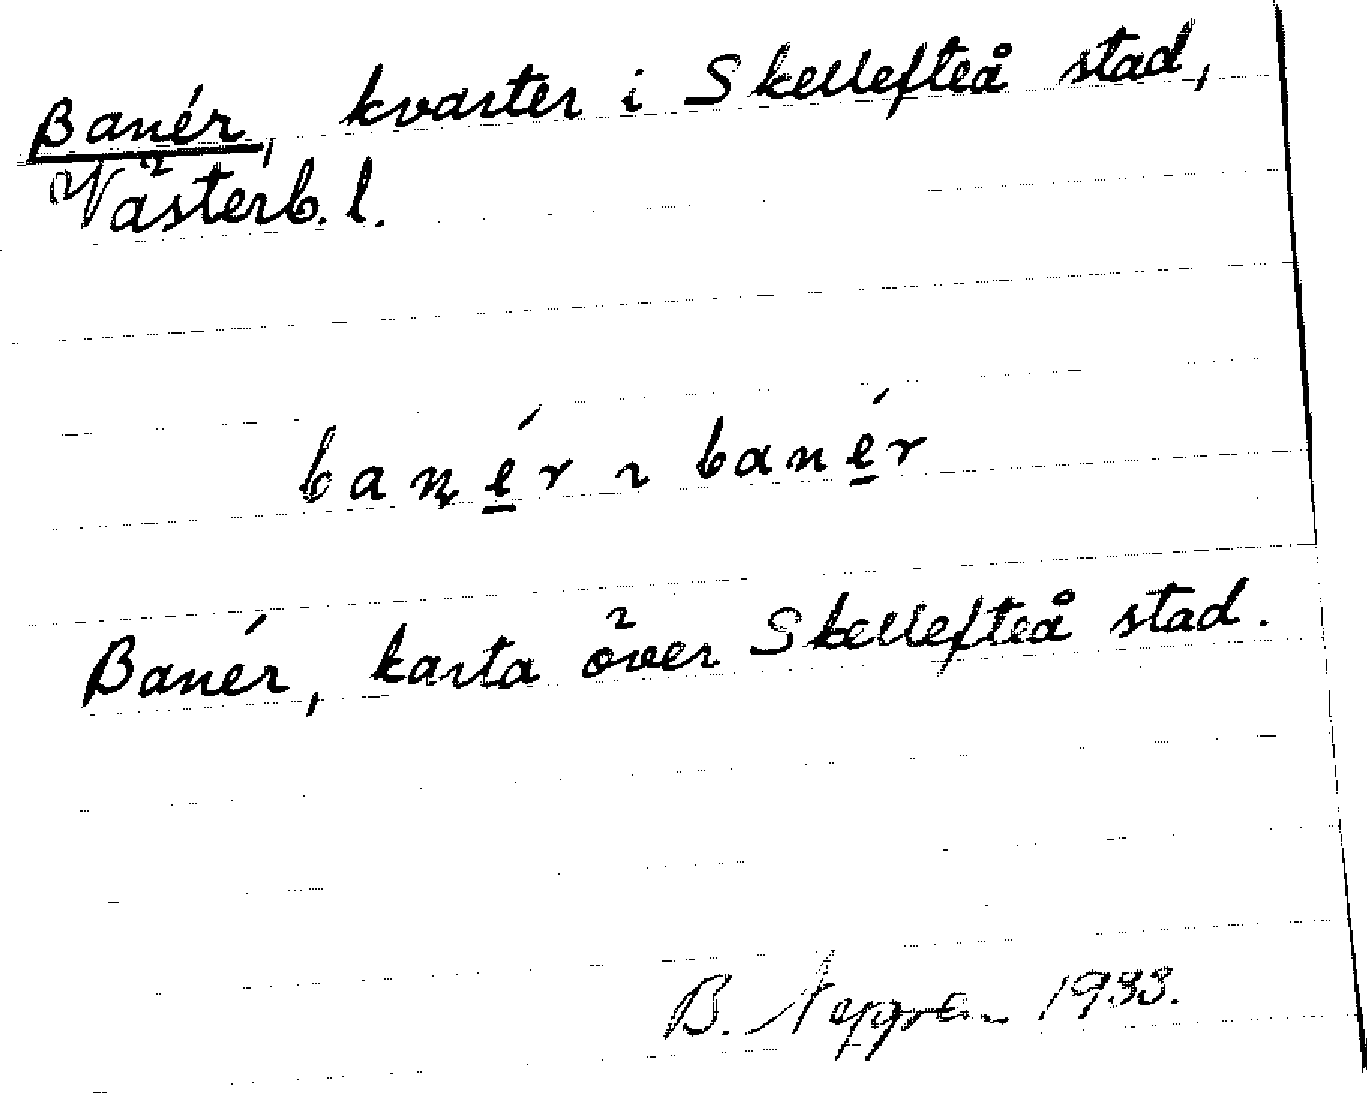 Banér, kvarter i Skellefteå stad,
Västerb. l.
banér ~ banér
Banér, karta över Skellefteå stad.
B. 1933.